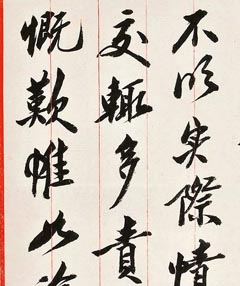 不以实際情
交輒多責
慨歎惟以